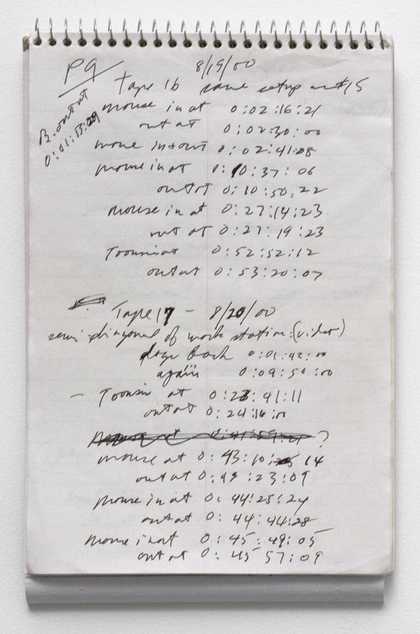 P9
8/19/00
Tape 16 same setup as 15
B. out at
0:01:55:29
mouse in at 0:02:16:21
out at 0:02:30:00
mouse in+out 0:02:41:28
mouse in at 0:10:37:06
out at 0:10:50,22
mouse in at 0:27:14:23
out at 0:27:19:23
Toonsin at 0:52:52:12
out at 0:53:20:07
Tape 17 - 8/20/00
semi-diagonal of work station (video)
dogs bark 0:01:42:00
again 0:09:50:00
- Toonsin at 0:23:41:11
out at 0:24:16:11
?
mouse at 0:43:10: 14
out at 0:43:23:09
mouse in at 0:44:25:24
out at 0:44:44:28
mouse in at 0:45:49:05
out at 0:45:57:09